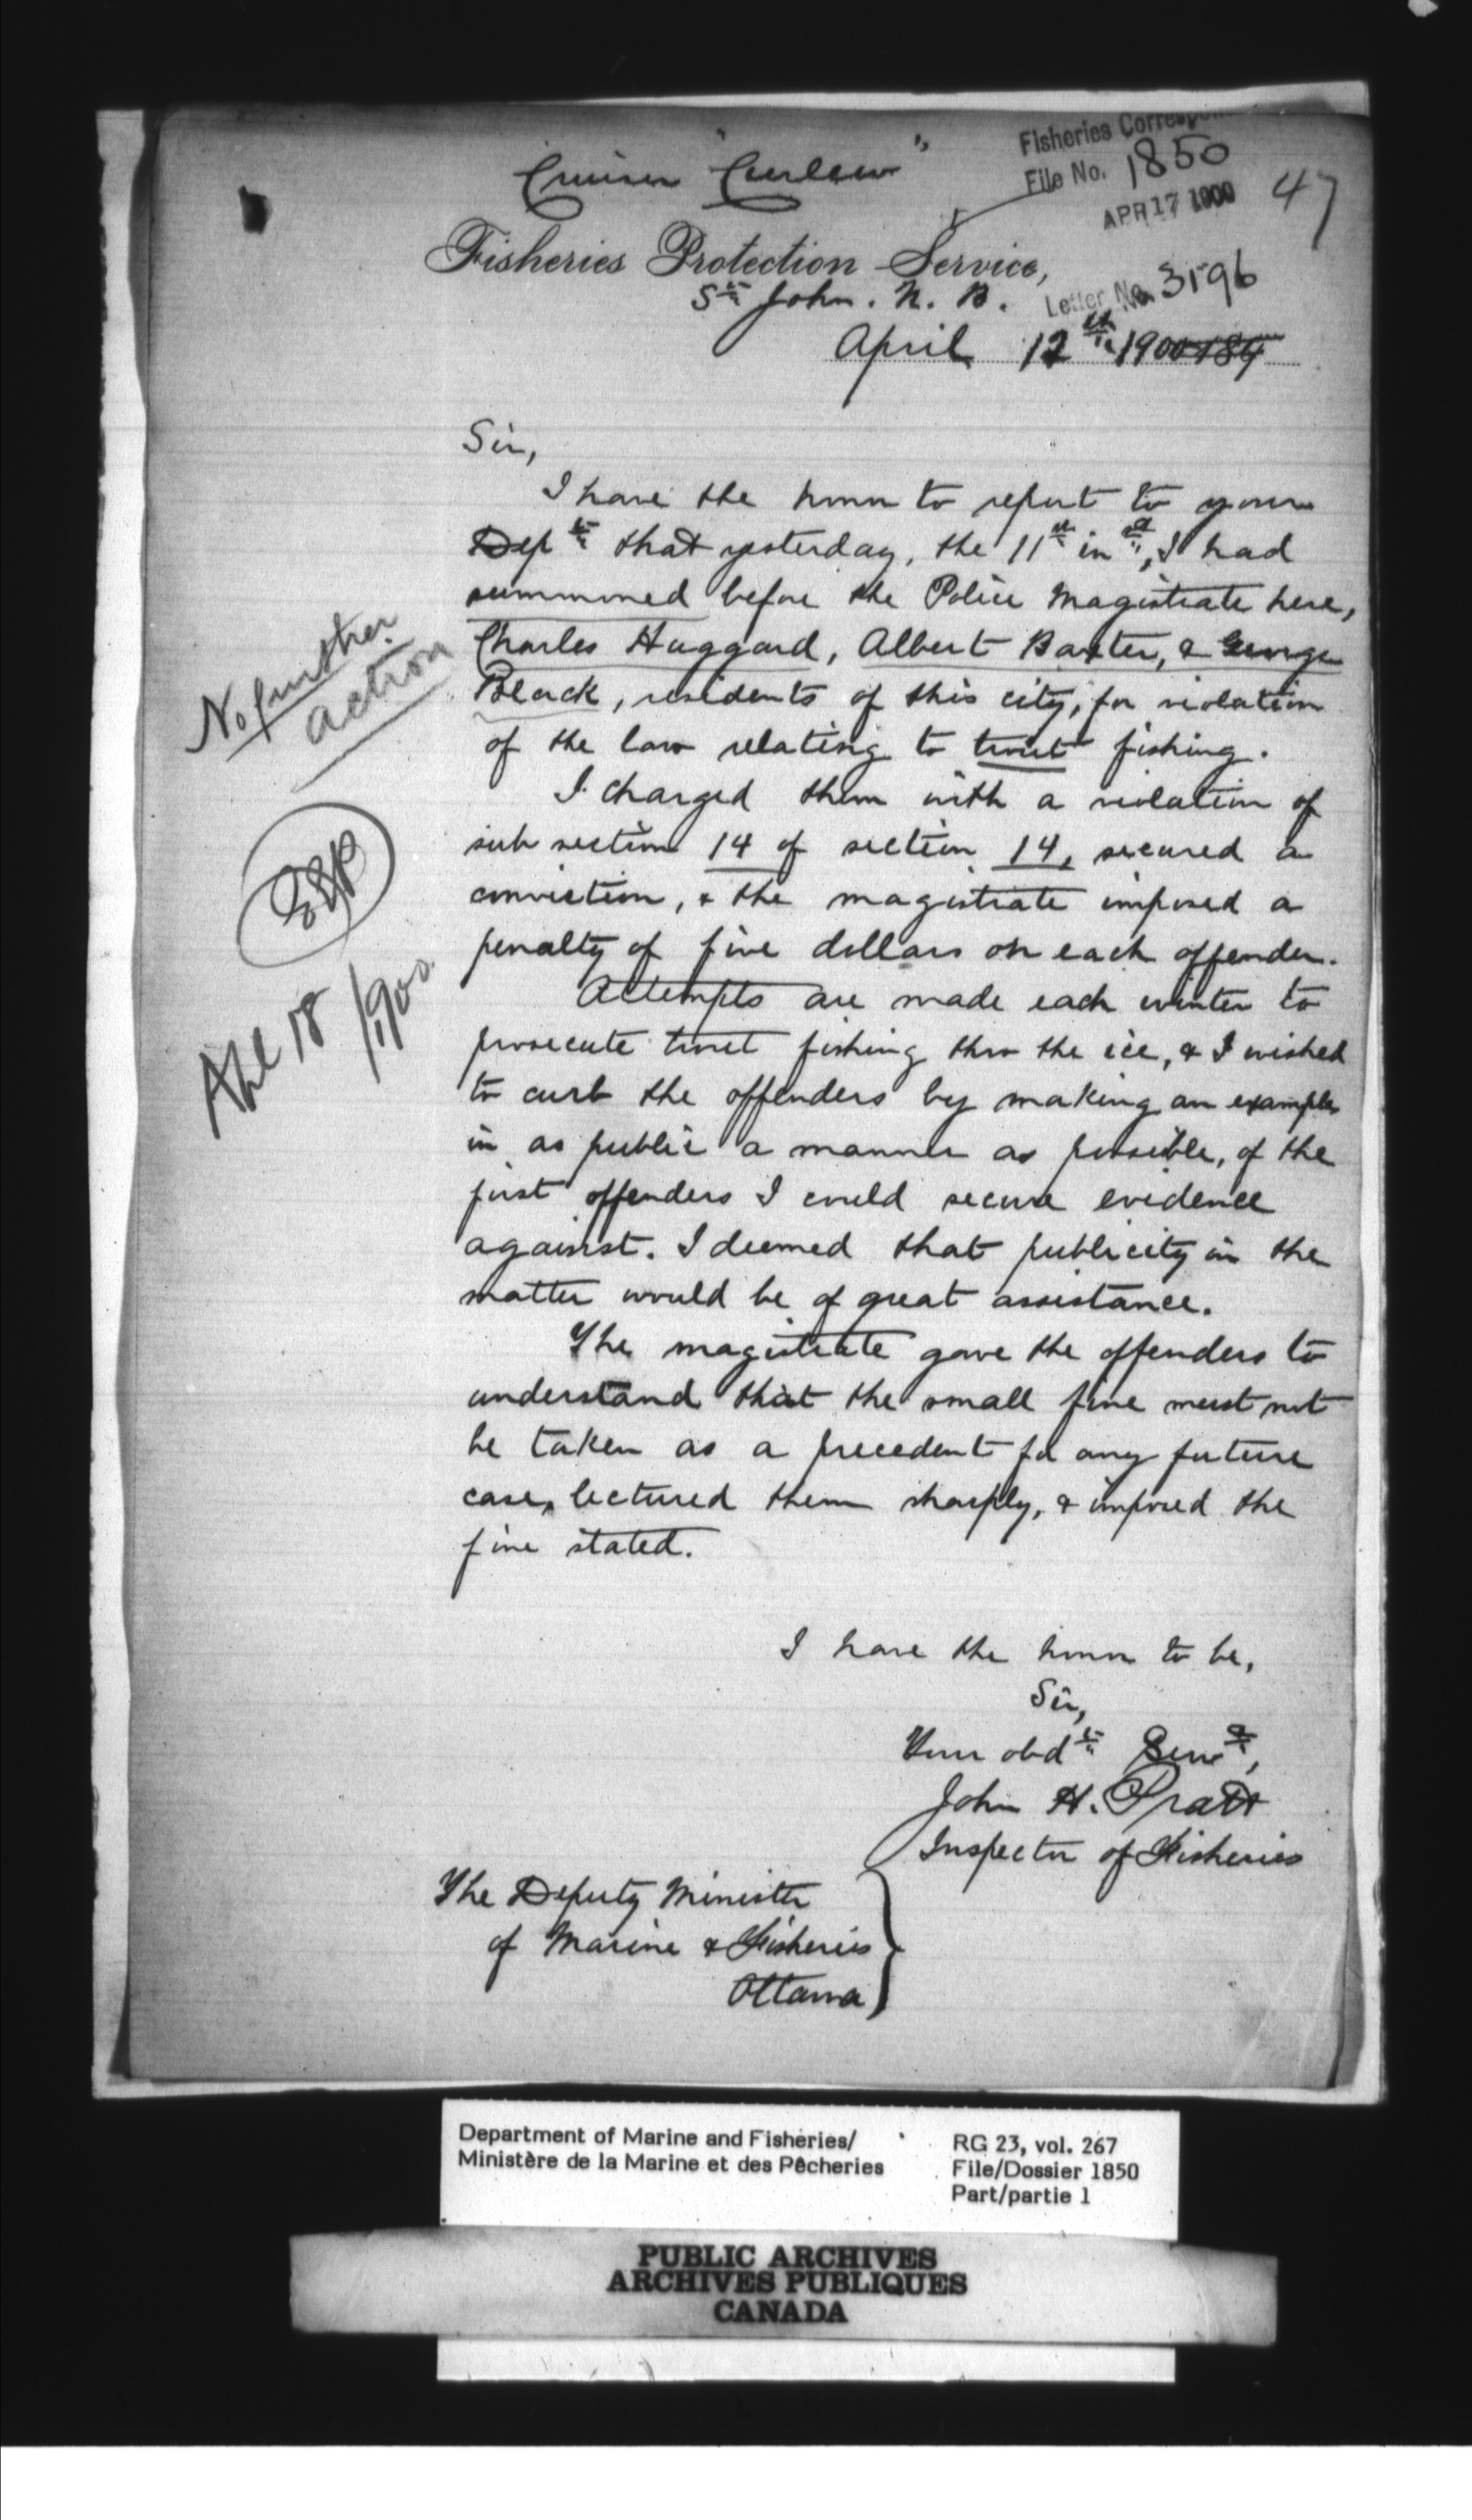 Cruiser "Curlew"
Fisheries Corresp
File No. 1850
APR 17 1900
47
Fisheries Protection Service,
St John. N. B.
Letter No. 3596
April 12th 1900 189
Sir,
I have the honor to report to your
Dept that yesterday, the 11th inst, I had
summoned before the Police Magistrate here,
Charles Huggard, Albert Baxter, & George
Black, residents of this city, for violation
of the law relating to trout fishing.
No further
action
I charged them with a violation of
sub section 14 of section 14, secured a
conviction, & the magistrate imposed a
penalty of five dollars on each offender.
Apl 18/1900
Attempts are made each winter to
prosecute trout fishing thro the ice, & I wished
to curb the offenders by making an example
in as public a manner as possible, of the
first offenders I could secure evidence
against. I deemed that publicity in the
matter would be of great assistance.
The magistrate gave the offenders to
understand that the small fine must not
be taken as a precedent for any future
case, lectured them sharply, & imposed the
fine stated.
I have the honor to be,
Sir,
Your obdt Servt,
John H. Pratt
Inspector of Fisheries
The Deputy Minister
of Marine & Fisheries
Ottawa
Department of Marine and Fisheries/
Ministère de la Marine et des Pêcheries
RG 23, vol. 267
File/Dossier 1850
Part/partie 1
PUBLIC ARCHIVES
ARCHIVES PUBLIQUES
CANADA